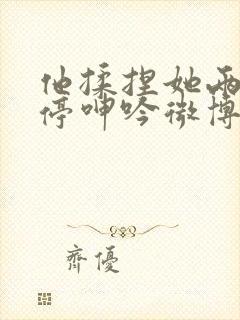 他揉捏她两
停呻吟微博
齊優